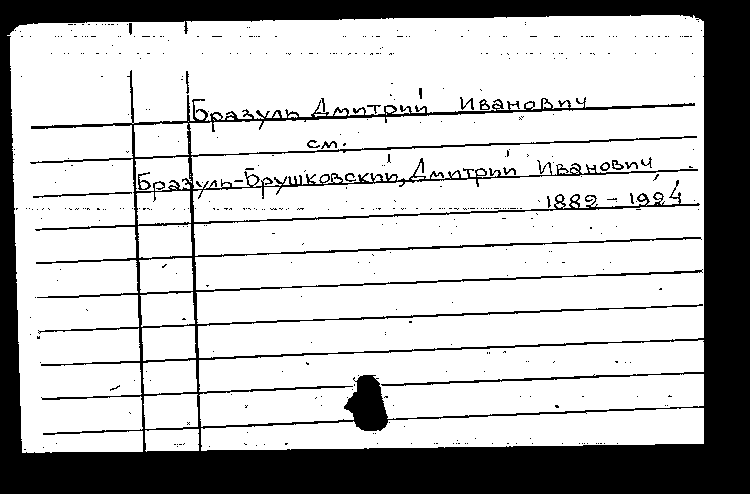 Бразуль, Дмитрий Иванович
см.
Бразуль-Брушковский, Дмитрий Иванович
1882 - 1924